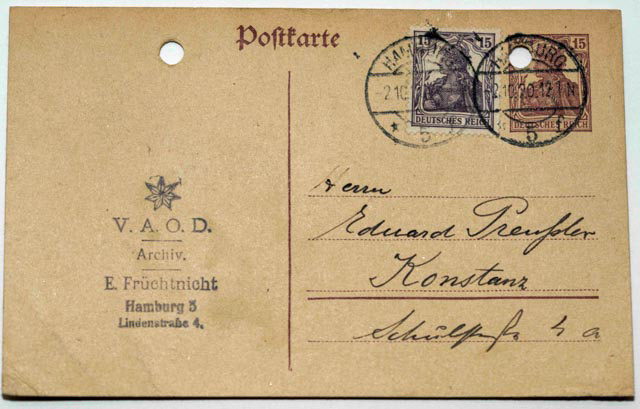 Postkarte
15 15
DEUTSCHES REICH
15
DEUTSCHES REICH
HAMBURG
5
HAMBURG
2.10.20.12-1N
5
V. A. O. D.
Archiv.
E. Früchtnicht
Hamburg 5
Lindenstraße 4.
Herrn
Eduard Preußler
Konstanz
Schülstraße 4 a